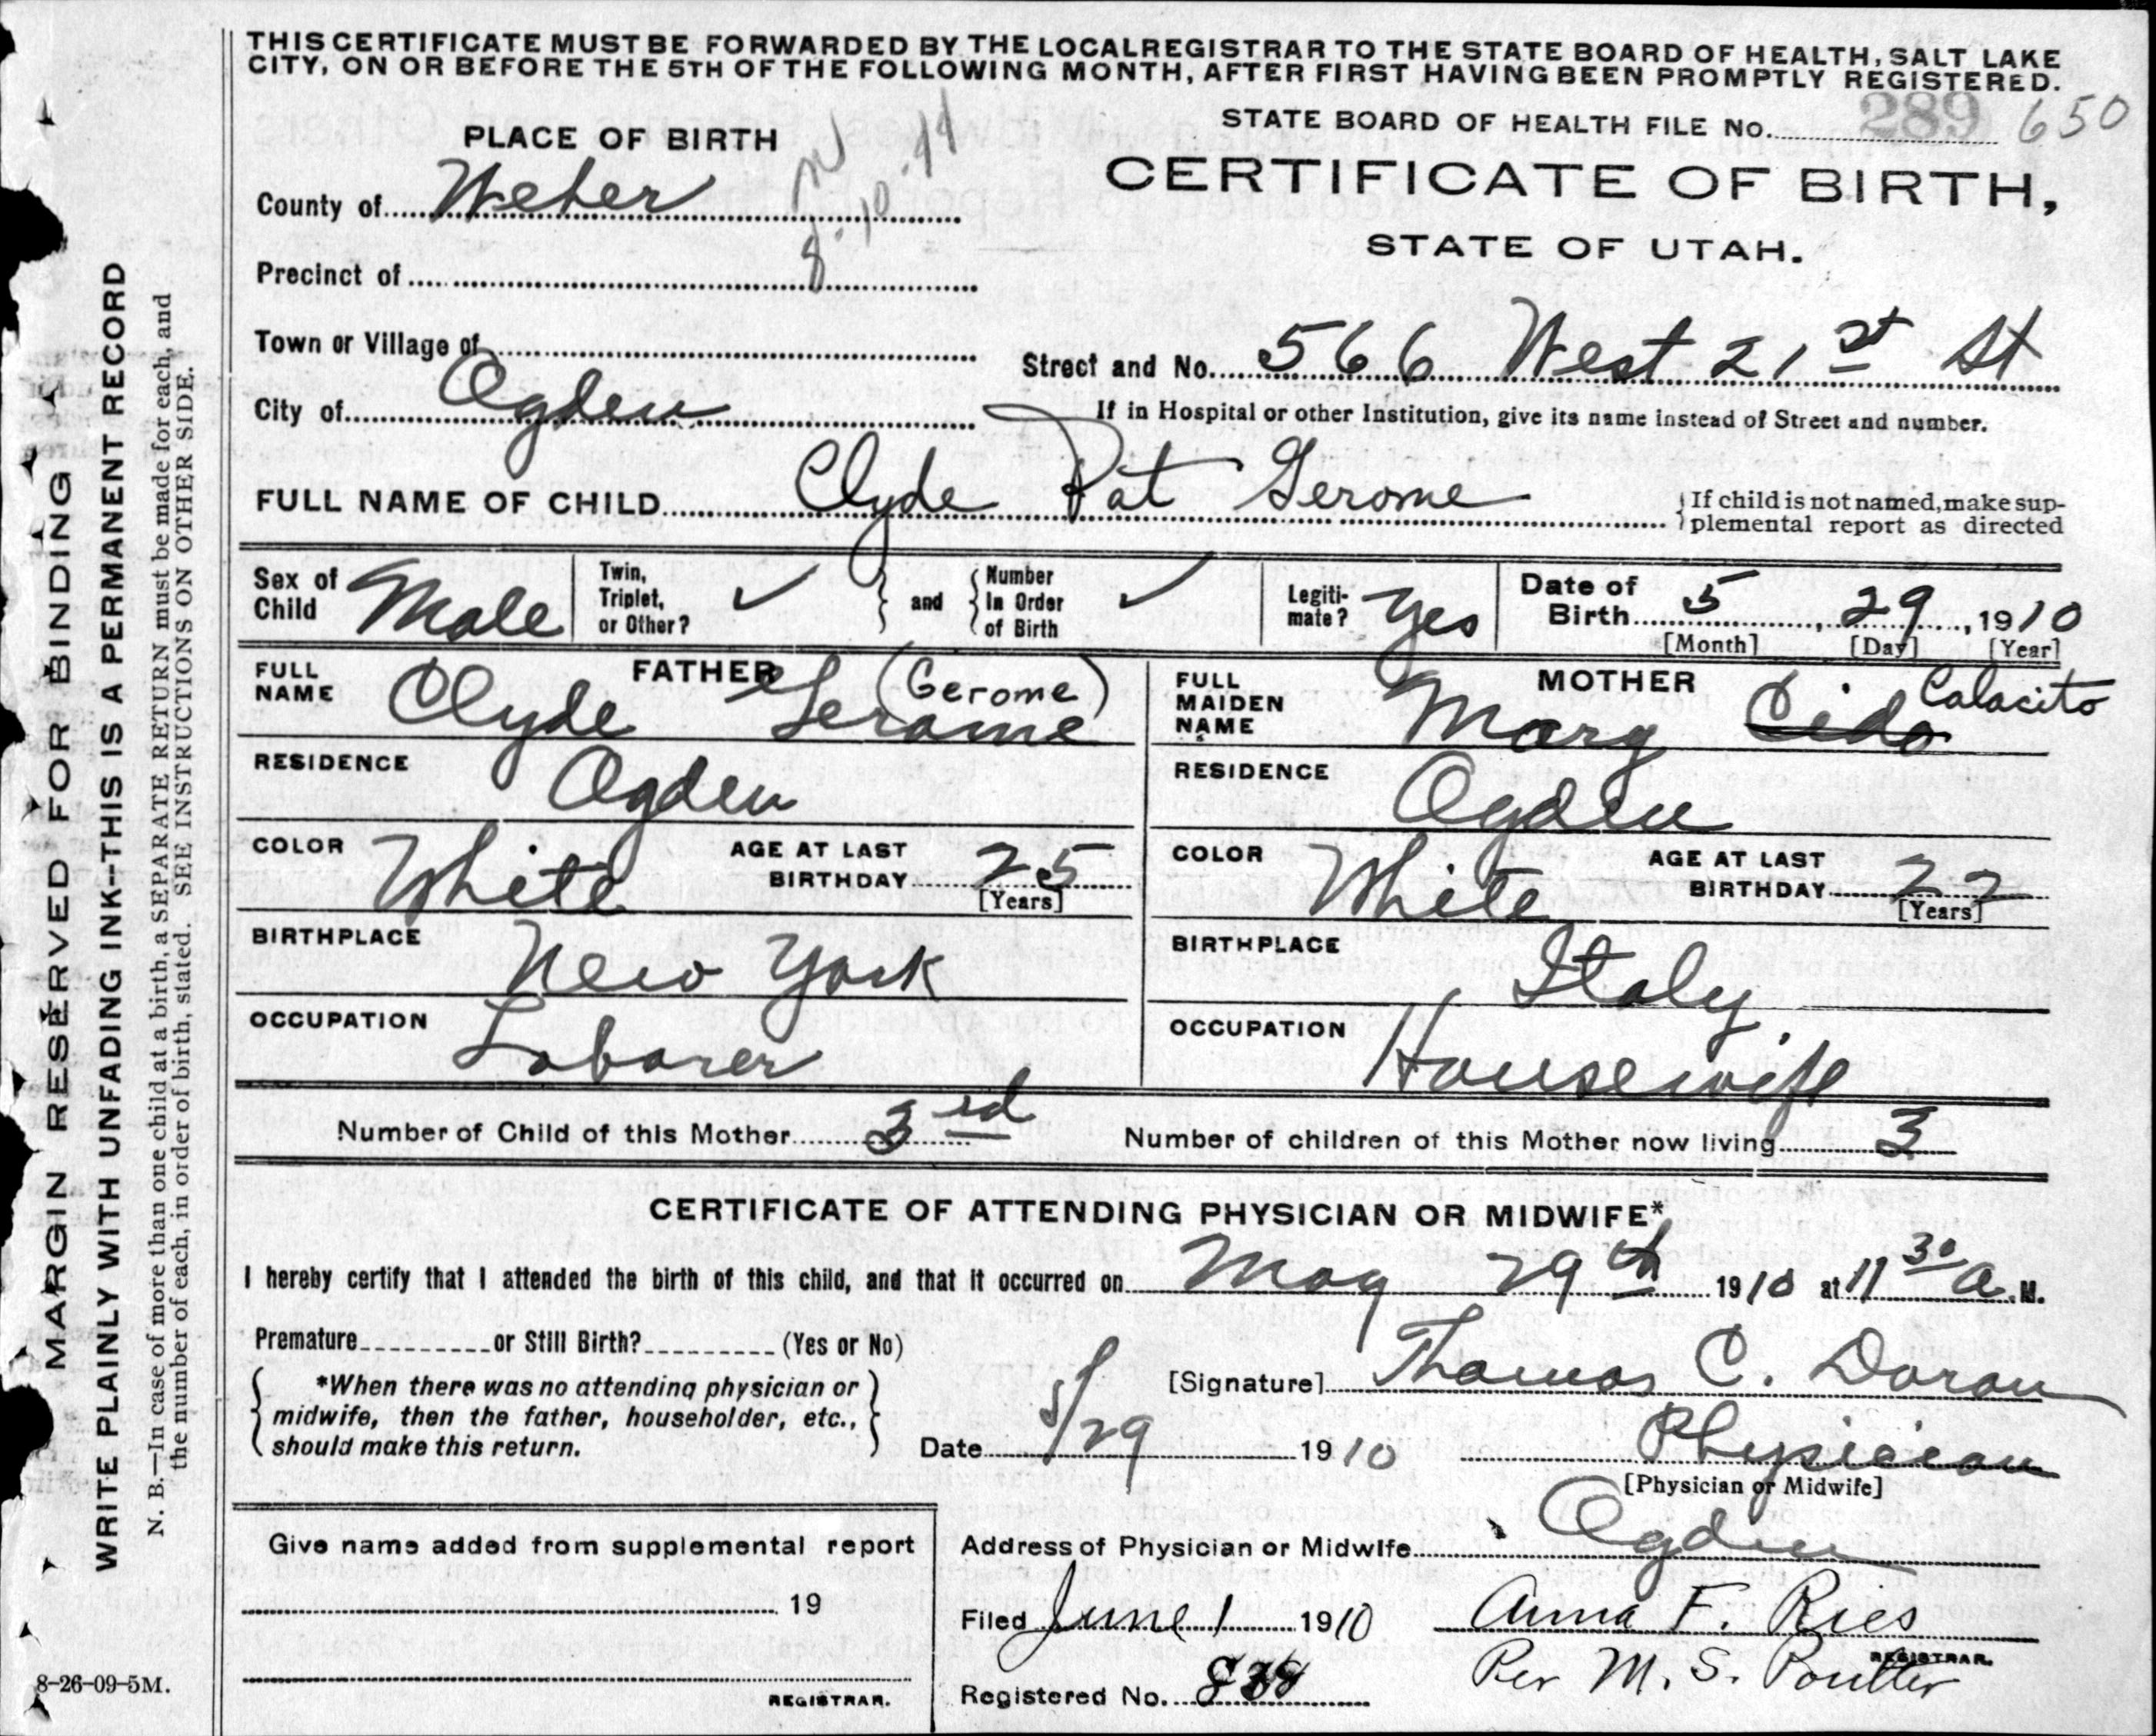 THIS CERTIFICATE MUST BE FORWARDED BY THE LOCAL REGISTRAR TO THE STATE BOARD OF HEALTH, SALT LAKE
CITY, ON OR BEFORE THE 5TH OF THE FOLLOWING MONTH, AFTER FIRST HAVING BEEN PROMPTLY REGISTERED.
STATE BOARD OF HEALTH FILE No. 289 650
PLACE OF BIRTH
CERTIFICATE OF BIRTH,
STATE OF UTAH.
County of Weber
Precinct of
Town or Village of
Street and No. 566 West 21st St
City of Ogden
If in Hospital or other Institution, give its name instead of Street and number.
FULL NAME OF CHILD Clyde Pat Gerome
{If child is not named, make sup-
plemental report as directed
Sex of Child Male
Twin, Triplet, or Other? ✓
} and {
Number In Order of Birth ✓
Legiti-mate? Yes
Date of Birth 5, 29, 1910
[Month] [Day] [Year]
FATHER
FULL NAME Clyde Gerome (Gerome)
RESIDENCE Ogden
COLOR White AGE AT LAST BIRTHDAY 25
[Years]
BIRTHPLACE New York
OCCUPATION Laborer
MOTHER
FULL MAIDEN NAME Mary Cido Calacito
RESIDENCE Ogden
COLOR White AGE AT LAST BIRTHDAY 22
[Years]
BIRTHPLACE Italy
OCCUPATION Housewife
Number of Child of this Mother 3rd Number of children of this Mother now living 3
CERTIFICATE OF ATTENDING PHYSICIAN OR MIDWIFE*
I hereby certify that I attended the birth of this child, and that it occurred on May 29th 1910 at 11 30 a. M.
Premature or Still Birth? (Yes or No)
*When there was no attending physician or
midwife, then the father, householder, etc.,
should make this return.
[Signature] Thomas C. Doran
Date 5/29 1910
Physician
[Physician or Midwife]
Address of Physician or Midwife Ogden
Give name added from supplemental report
19
REGISTRAR.
Filed June 1 1910 Anna F. Ries
REGISTRAR.
Registered No. Per M. S. Poulter
MARGIN RESERVED FOR BINDING
WRITE PLAINLY WITH UNFADING INK--THIS IS A PERMANENT RECORD
N. B.—In case of more than one child at a birth, a SEPARATE RETURN must be made for each, and
the number of each, in order of birth, stated. SEE INSTRUCTIONS ON OTHER SIDE.
8-26-09-5M.